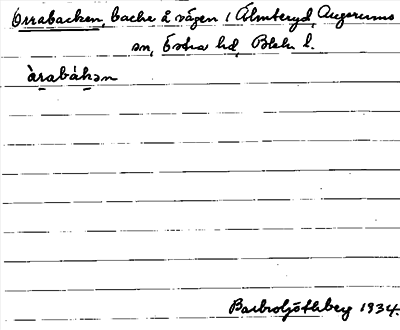 Orrabacken, backe å vägen i Älmteryd, Augerums
sn, Östra hd, Blek. l.
àrabákən
Barbro Göthberg 1934.